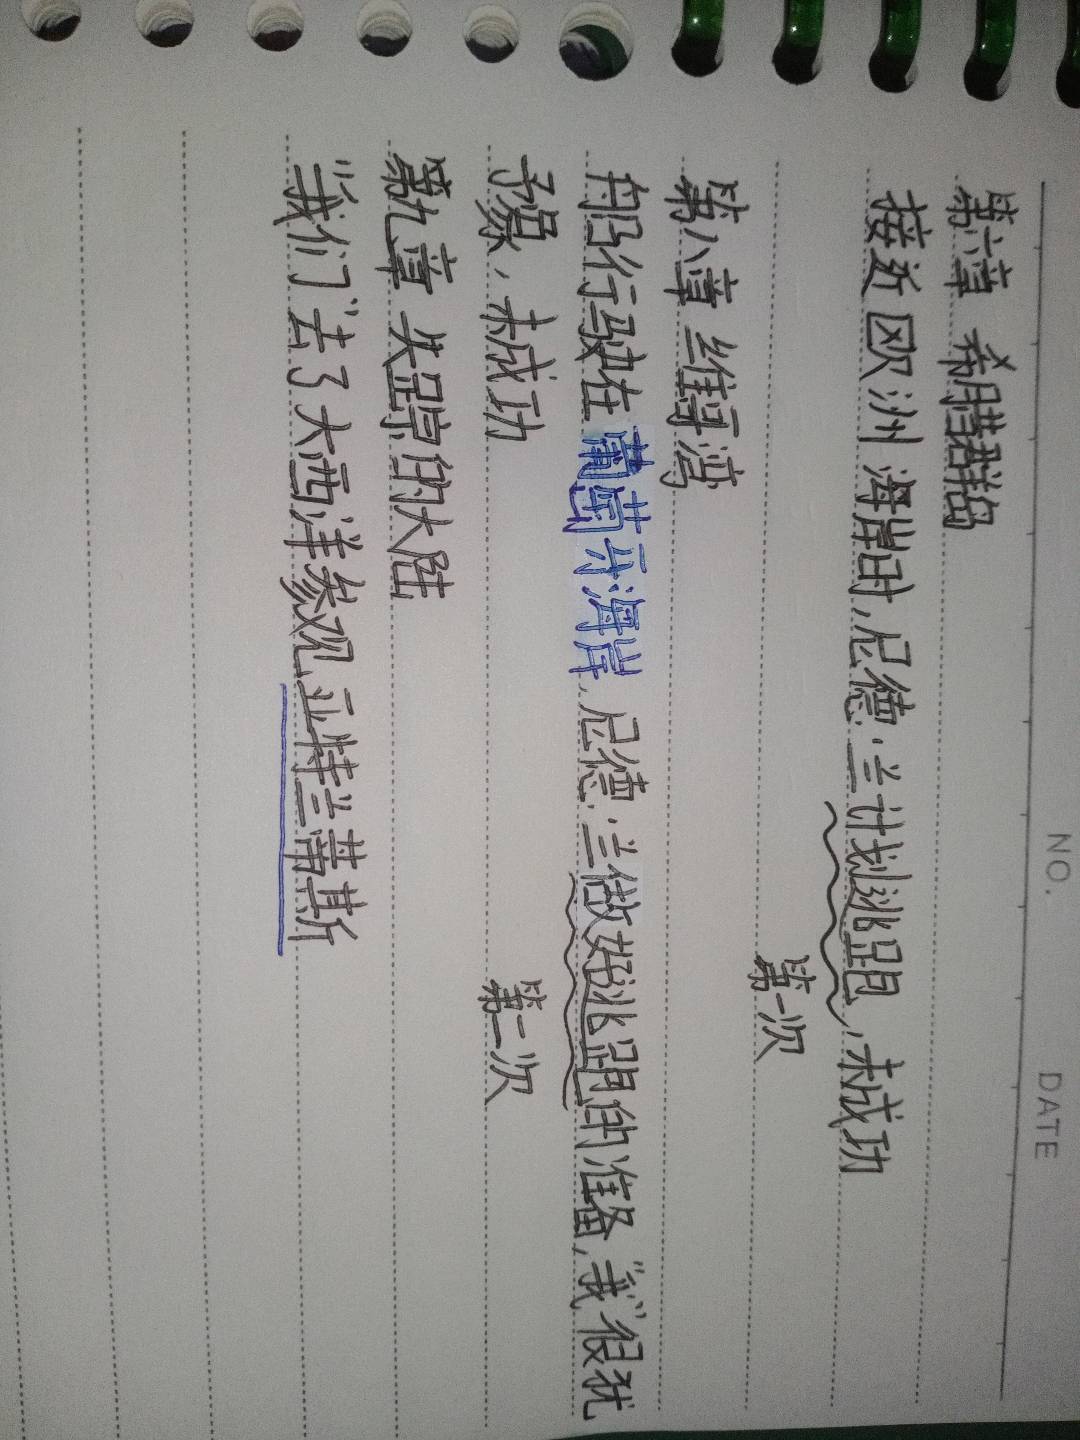 NO.
DATE
第六章 希腊群岛
接近欧洲海岸时,尼德·兰计划逃跑,未成功
第一次
第八章 维哥湾
船行驶在葡萄牙海岸,尼德·兰做好逃跑的准备,"我"很犹
予暴,未成功
第二次
第九章 失踪的大陆
"我们"去了大西洋参观亚特兰蒂斯